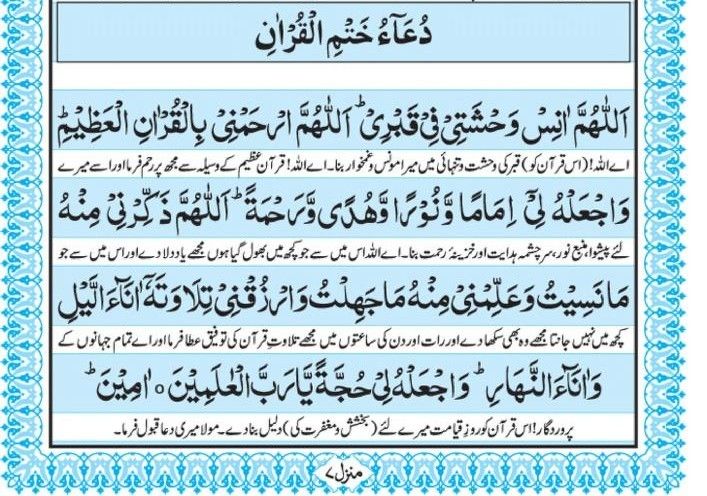 دُعَآءُ خَتْمِ الْقُرْاٰنِ
اَللّٰهُمَّ اٰنِسْ وَحْشَتِيْ فِيْ قَبْرِيْ ؕ اَللّٰهُمَّ ارْحَمْنِيْ بِالْقُرْاٰنِ الْعَظِيْمِ ؕ
اے اللہ! (اس قرآن کو) قبر کی وحشت و تنہائی میں میرا مونس و غمخوار بنا۔ اے اللہ! قرآن عظیم کے وسیلہ سے مجھ پر رحم فرما اور اسے میرے
وَاجْعَلْهُ لِيْٓ اِمَامًا وَّنُوْرًا وَّهُدًى وَّرَحْمَةً ؕ اَللّٰهُمَّ ذَكِّرْنِيْ مِنْهُ
لئے پیشوا، منبع نور، سرچشمہ ہدایت اور خزینۂ رحمت بنا۔ اے اللہ اس میں سے جو کچھ میں بھول گیا ہوں مجھے یاد دلا دے اور اس میں سے جو
مَا نَسِيْتُ وَعَلِّمْنِيْ مِنْهُ مَا جَهِلْتُ وَارْزُقْنِيْ تِلَاوَتَهٗٓ اٰنَآءَ الَّيْلِ
کچھ میں نہیں جانتا مجھے وہ بھی سکھا دے اور رات اور دن کی ساعتوں میں مجھے تلاوتِ قرآن کی توفیق عطا فرما اور اے تمام جہانوں کے
وَاٰنَآءَ النَّهَارِ ؕ وَاجْعَلْهُ لِيْ حُجَّةً يَّا رَبَّ الْعٰلَمِيْنَ ۰ اٰمِيْنَ ؕ
پروردگار! اس قرآن کو روزِ قیامت میرے لئے (بخشش و مغفرت کی) دلیل بنا دے۔ مولا میری دعا قبول فرما۔
منزل ۷